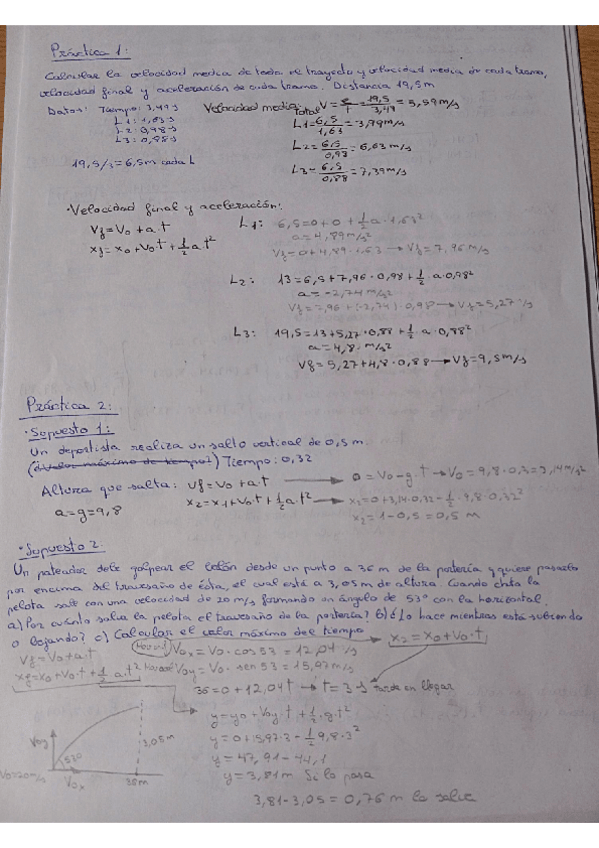 Práctica 1:
Calcular la velocidad media de todo el trayecto y velocidad media de cada tramo,
velocidad final y aceleración de cada tramo. Distancia 19,5m
Datos: Tiempo: 3,49s
L1: 1,63s
L2: 0,98s
L3: 0,88s
19,5/3 = 6,5m cada L
Velocidad media: Total V = e/t = 19,5/3,49 = 5,59m/s
L1 = 6,5/1,63 = 3,99m/s
L2 = 6,5/0,98 = 6,63 m/s
L3 = 6,5/0,88 = 7,39m/s
· Velocidad final y aceleración:
Vf = V0 + a.t
xf = x0 + V0.t + 1/2 a.t²
L1: 6,5 = 0 + 0 + 1/2 a. 1,63²
a = 4,89m/s²
Vf = 0 + 4,89 · 1,63 → Vf = 7,96 m/s
L2: 13 = 6,5 + 7,96 · 0,98 + 1/2 · a · 0,98²
a = -2,74 m/s²
Vf = 7,96 + (-2,74) · 0,98 → Vf = 5,27 m/s
L3: 19,5 = 13 + 5,27 · 0,88 + 1/2 · a · 0,88²
a = 4,8 · m/s²
Vf = 5,27 + 4,8 · 0,88 → Vf = 9,5m/s
Práctica 2:
· Supuesto 1:
Un deportista realiza un salto vertical de 0,5 m.
Tiempo: 0,32
Altura que salta: Vf = V0 + a.t → 0 = V0 - g.t → V0 = 9,8 · 0,3 = 3,14m/s
a = g = 9,8
x2 = x1 + V0.t + 1/2 a.t² → x2 = 0 + 3,14 · 0,32 - 1/2 · 9,8 · 0,32²
x2 = 1 - 0,5 = 0,5 m
· Supuesto 2
Un pateador debe golpear el balón desde un punto a 36 m de la portería y quiere pasarlo
por encima del travesaño de ésta, el cual está a 3,05 m de altura. Cuando chuta la
pelota sale con una velocidad de 20 m/s formando un ángulo de 53° con la horizontal.
a) Por cuánto salva la pelota el travesaño de la portería? b) ¿Lo hace mientras está subiendo
o bajando? c) Calcular el valor máximo del tiempo
x2 = x0 + V0.t
Vf = V0 + a.t
xf = x0 + V0.t + 1/2 a.t²
V0x = V0 · cos 53 = 12,04 m/s
V0y = V0 · sen 53 = 15,97 m/s
36 = 0 + 12,04 t → t = 3 s tarda en llegar
y = y0 + V0y.t + 1/2 · g.t²
y = 0 + 15,97 · 3 - 1/2 9,8 · 3²
y = 47,91 - 44,1
y = 3,81m Si lo pasa
3,81 - 3,05 = 0,76 m lo salva
V0y
53°
3,05m
V0 = 20m/s
V0x
36m